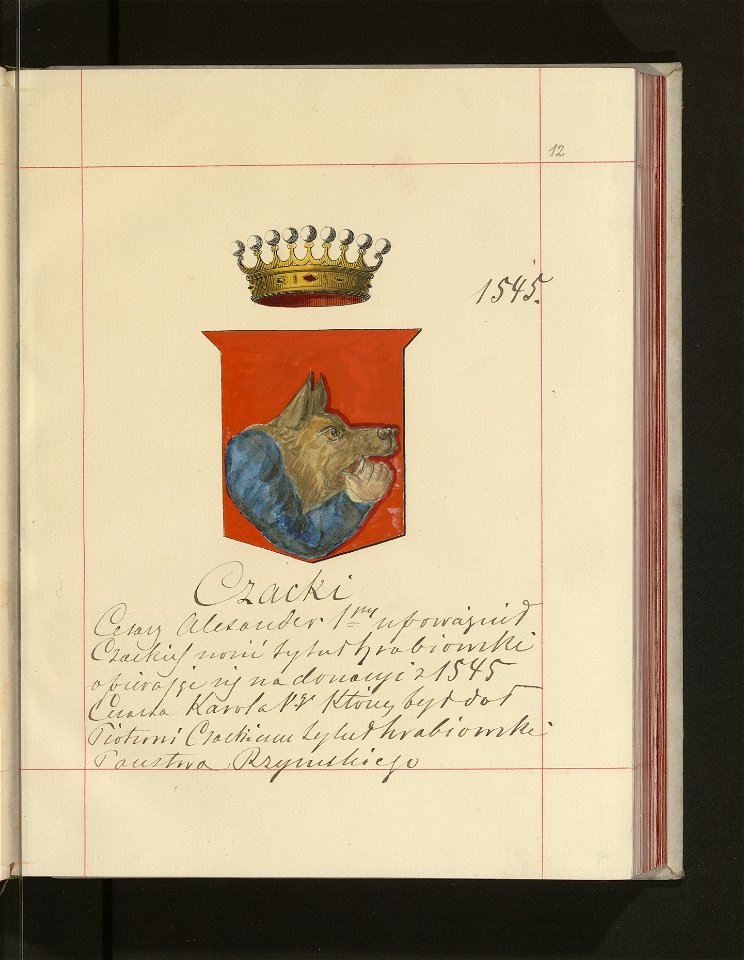 12
1545.
Czacki
Cesarz Alexander 1ny upoważnił
Czackich nosić tytuł hrabiowski
opierając się na donacyi z 1545
Cesarza Karola Vgo który był dał
Piotrowi Czackiemu tytuł hrabiowski
Państwa Rzymskiego